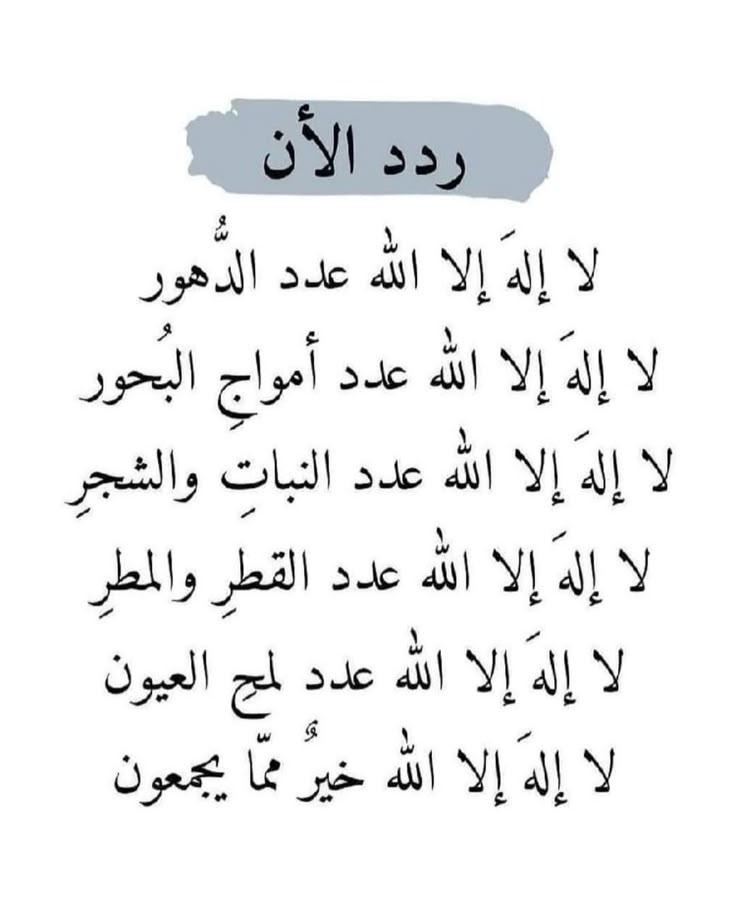 ردد الأن
لا إلهَ إلا الله عدد الدُّهور
لا إلهَ إلا الله عدد أمواجِ البُحور
لا إلهَ إلا الله عدد النباتِ والشجرِ
لا إلهَ إلا الله عدد القطرِ والمطرِ
لا إلهَ إلا الله عدد لمحِ العيون
لا إلهَ إلا الله خيرٌ ممّا يجمعون